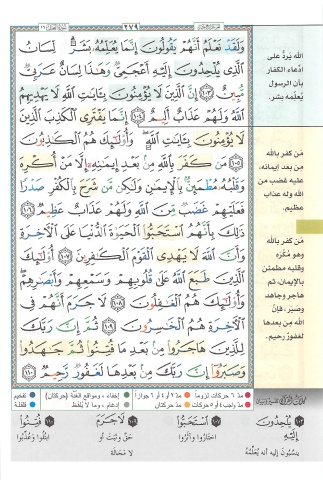 ٢٧٩
وَلَقَدْ نَعْلَمُ أَنَّهُمْ يَقُولُونَ إِنَّمَا يُعَلِّمُهُۥ بَشَرٌ ۗ لِسَانُ
الَّذِى يُلْحِدُونَ إِلَيْهِ أَعْجَمِىٌّ وَهَٰذَا لِسَانٌ عَرَبِىٌّ
مُّبِينٌ ١٠٣ إِنَّ الَّذِينَ لَا يُؤْمِنُونَ بِـَٔايَٰتِ اللَّهِ لَا يَهْدِيهِمُ
اللَّهُ وَلَهُمْ عَذَابٌ أَلِيمٌ ١٠٤ إِنَّمَا يَفْتَرِى الْكَذِبَ الَّذِينَ
لَا يُؤْمِنُونَ بِـَٔايَٰتِ اللَّهِ ۖ وَأُو۟لَٰٓئِكَ هُمُ الْكَٰذِبُونَ
١٠٥ مَن كَفَرَ بِاللَّهِ مِنۢ بَعْدِ إِيمَٰنِهِۦٓ إِلَّا مَنْ أُكْرِهَ
وَقَلْبُهُۥ مُطْمَئِنٌّۢ بِالْإِيمَٰنِ وَلَٰكِن مَّن شَرَحَ بِالْكُفْرِ صَدْرًا
فَعَلَيْهِمْ غَضَبٌ مِّنَ اللَّهِ وَلَهُمْ عَذَابٌ عَظِيمٌ ١٠٦
ذَٰلِكَ بِأَنَّهُمُ اسْتَحَبُّوا۟ الْحَيَوٰةَ الدُّنْيَا عَلَى الْءَاخِرَةِ
وَأَنَّ اللَّهَ لَا يَهْدِى الْقَوْمَ الْكَٰفِرِينَ ١٠٧ أُو۟لَٰٓئِكَ
الَّذِينَ طَبَعَ اللَّهُ عَلَىٰ قُلُوبِهِمْ وَسَمْعِهِمْ وَأَبْصَٰرِهِمْ ۖ
وَأُو۟لَٰٓئِكَ هُمُ الْغَٰفِلُونَ ١٠٨ لَا جَرَمَ أَنَّهُمْ فِى
الْءَاخِرَةِ هُمُ الْخَٰسِرُونَ ١٠٩ ثُمَّ إِنَّ رَبَّكَ
لِلَّذِينَ هَاجَرُوا۟ مِنۢ بَعْدِ مَا فُتِنُوا۟ ثُمَّ جَٰهَدُوا۟
وَصَبَرُوٓا۟ إِنَّ رَبَّكَ مِنۢ بَعْدِهَا لَغَفُورٌ رَّحِيمٌ ١١٠
الله يَردُّ على
ادّعاء الكفار
بأن الرسول
يُعلّمه بشر.
مَن كفر بالله
من بعد إيمانه،
عليه غضب من
الله وله عذاب
عظيم.
مَن كفر بالله
وهو مُكْره
وقلبه مطمئن
بالإيمان، ثم
هاجر وجاهد
وصبر، فإنّ
الله من بعدها
لغفورٌ رحيم.
مدّ ٦ حركات لزوماً
مدّ ٢ أو ٤ أو ٦ جوازاً
إخفاء، ومواقع الغُنّة (حركتان)
تفخيم
مدّ واجب ٤ أو ٥ حركات
مدّ حركتان
إدغام، وما لا يُلفَظ
قلقلة
١٠٣ يُلْحِدُونَ إِلَيْهِ
ينسبون إليه أنه يُعلِّمُهُ
١٠٧ اسْتَحَبُّوا
اختاروا وآثروا
١٠٩ لَا جَرَمَ
حقّ وثبت أو
لا محالة
١١٠ فُتِنُوا
ابتُلوا وعُذِّبوا